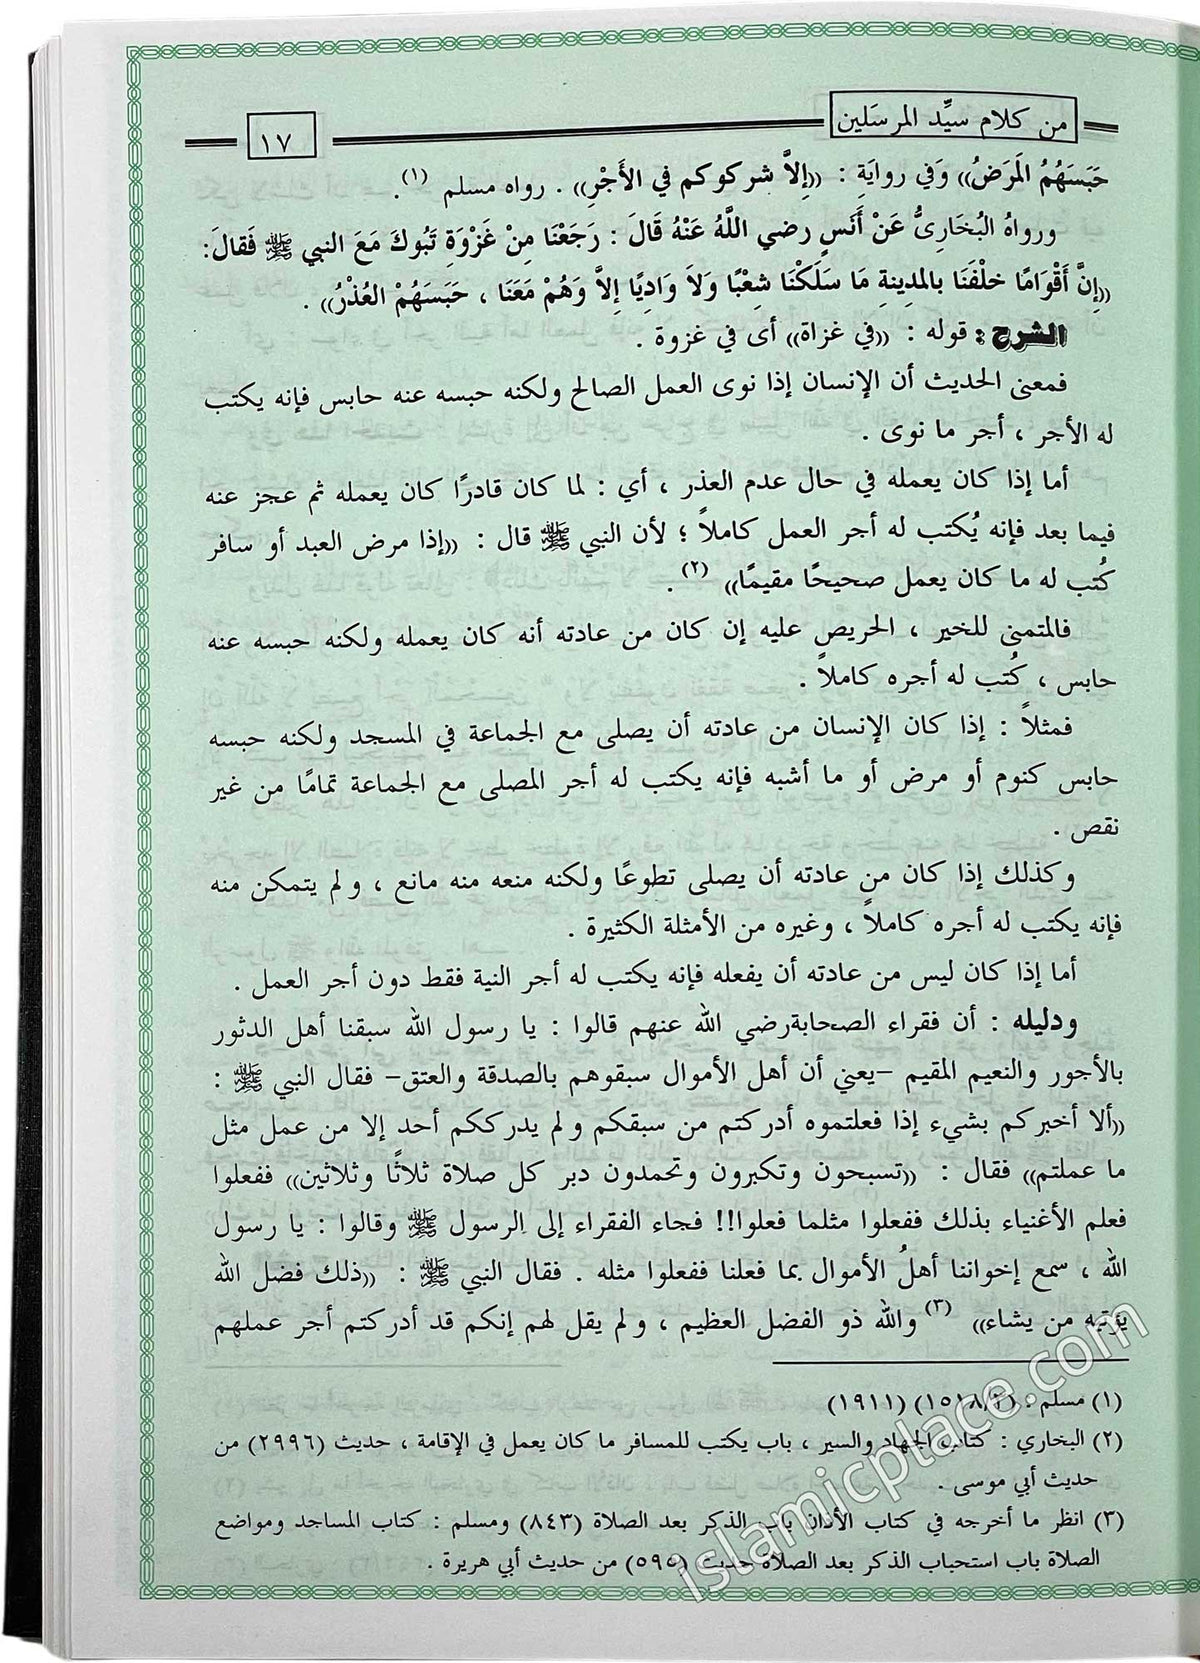 من كلام سيِّد المرسَلين
١٧
حَبَسَهُمُ المَرَضُ)) وَفي روايَةِ : ((إِلاَّ شركوكم في الأَجْرِ)) . رواه مسلم (١).
ورواهُ البُخَارِىُّ عَنْ أَنَسٍ رضي اللَّهُ عَنْهُ قَالَ : رَجَعْنَا مِنْ غَزْوَةِ تَبُوكَ مَعَ النبي ﷺ فَقالَ:
((إِنَّ أَقْوَامًا خلْفَنَا بالمدِينةِ مَا سَلَكْنَا شِعْبًا وَلاَ وَادِيًا إِلاَّ وَهُمْ مَعَنَا ، حَبَسَهُمْ العُذْرُ)) .
الشرح : قوله : ((في غزاة)) أى في غزوة .
فمعنى الحديث أن الإنسان إذا نوى العمل الصالح ولكنه حبسه عنه حابس فإنه يكتب
له الأجر ، أجر ما نوى .
أما إذا كان يعمله في حال عدم العذر ، أي : لما كان قادرًا كان يعمله ثم عجز عنه
فيما بعد فإنه يُكتب له أجر العمل كاملاً ؛ لأن النبي ﷺ قال : ((إذا مرض العبد أو سافر
كُتب له ما كان يعمل صحيحًا مقيمًا)) (٢) .
فالمتمنى للخير ، الحريص عليه إن كان من عادته أنه كان يعمله ولكنه حبسه عنه
حابس ، كُتب له أجره كاملاً .
فمثلاً : إذا كان الإنسان من عادته أن يصلى مع الجماعة في المسجد ولكنه حبسه
حابس كنوم أو مرض أو ما أشبه فإنه يكتب له أجر المصلى مع الجماعة تمامًا من غير
نقص .
وكذلك إذا كان من عادته أن يصلى تطوعًا ولكنه منعه منه مانع ، ولم يتمكن منه
فإنه يكتب له أجره كاملاً ، وغيره من الأمثلة الكثيرة .
أما إذا كان ليس من عادته أن يفعله فإنه يكتب له أجر النية فقط دون أجر العمل .
ودليله : أن فقراء الصحابةرضي الله عنهم قالوا : يا رسول الله سبقنا أهل الدثور
بالأجور والنعيم المقيم –يعني أن أهل الأموال سبقوهم بالصدقة والعتق– فقال النبي ﷺ :
((ألا أخبركم بشيء إذا فعلتموه أدركتم من سبقكم ولم يدرككم أحد إلا من عمل مثل
ما عملتم)) فقال : ((تسبحون وتكبرون وتحمدون دبر كل صلاة ثلاثًا وثلاثين)) ففعلوا
فعلم الأغنياء بذلك ففعلوا مثلما فعلوا!! فجاء الفقراء إلى الرسول ﷺ وقالوا : يا رسول
الله ، سمع إخواننا أهلُ الأموال بما فعلنا ففعلوا مثله . فقال النبي ﷺ : ((ذلك فضل الله
يؤتيه من يشاء)) (٣) والله ذو الفضل العظيم ، ولم يقل لهم إنكم قد أدركتم أجر عملهم
(١) مسلم : (١٥١٨/٢) (١٩١١)
(٢) البخاري : كتاب الجهاد والسير ، باب يكتب للمسافر ما كان يعمل في الإقامة ، حديث (٢٩٩٦) من
حديث أبي موسى .
(٣) انظر ما أخرجه في كتاب الأذان باب الذكر بعد الصلاة (٨٤٣) ومسلم : كتاب المساجد ومواضع
الصلاة باب استحباب الذكر بعد الصلاة حديث (٥٩٥) من حديث أبي هريرة .
islamicplace.com